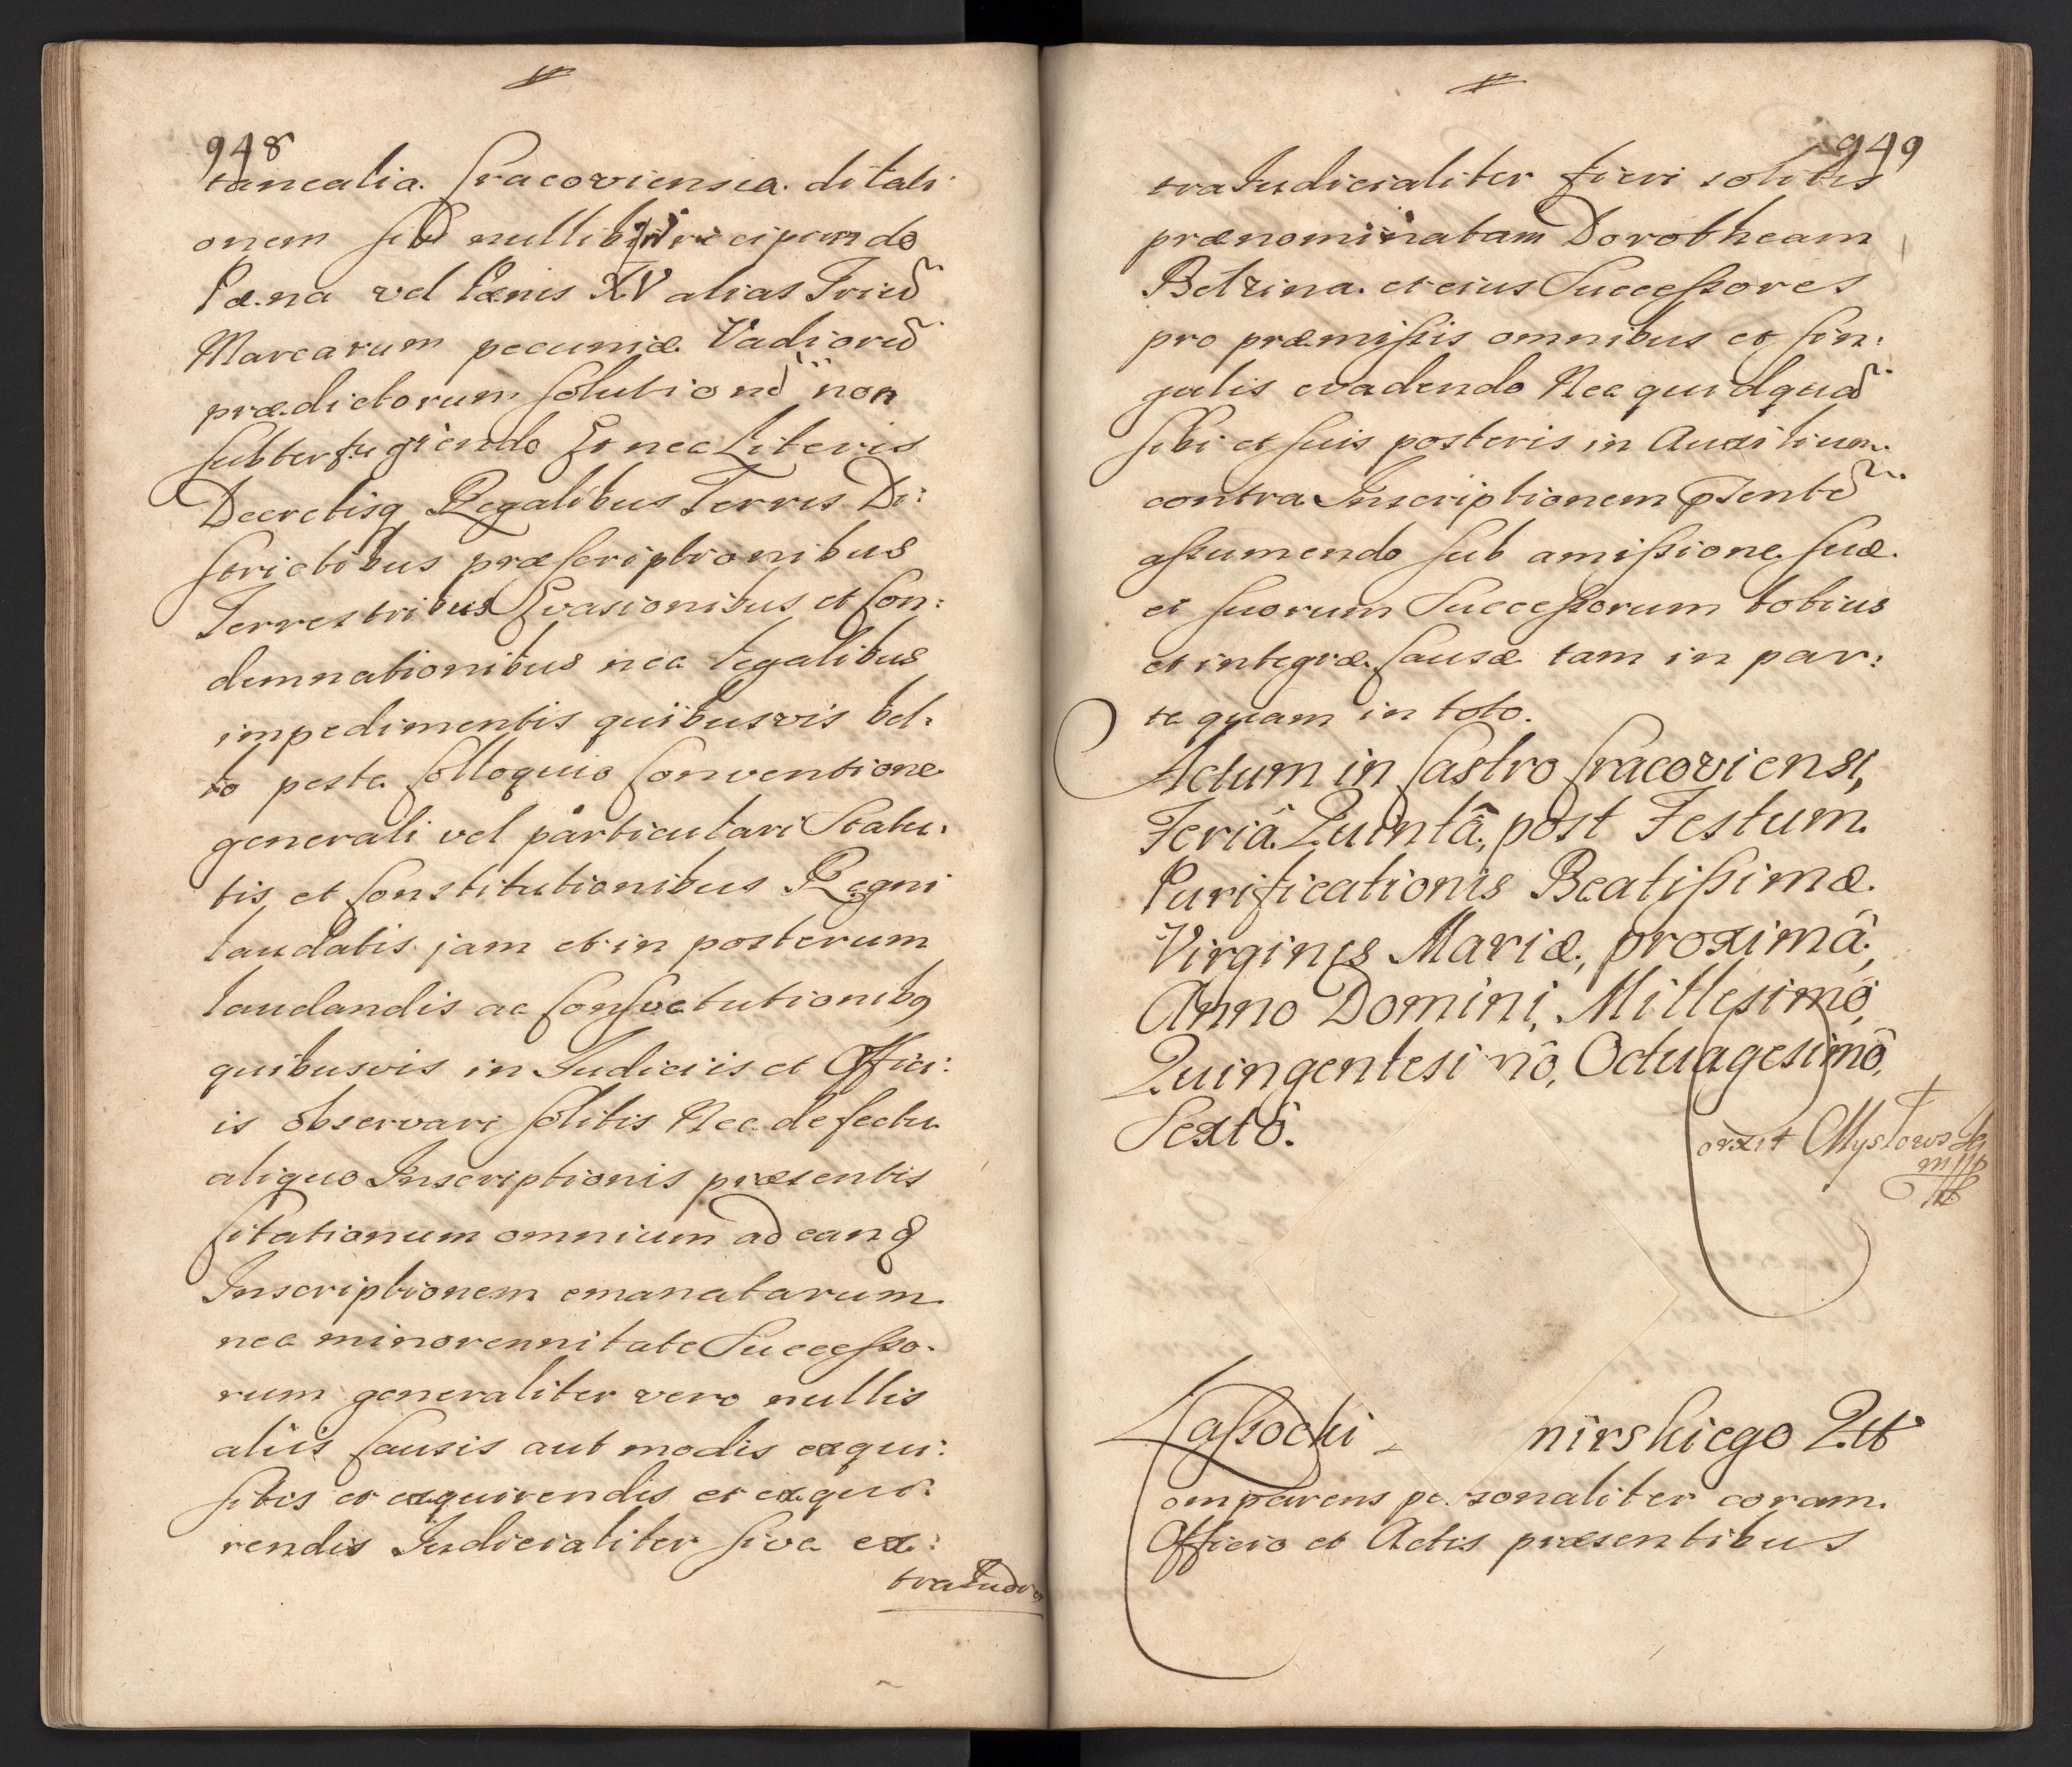 948
tancalia Cracoviensia dilati
onem sibi nullibi recipiendo
Pæna vel Pænis XV alias Triũ
Marcarum pecuniæ Vadiorũ
prædictorum solutionẽ non
subterfugiendo Et nec Literis
Decretisq Regalibus Terris Di:
strictibus præscriptionibus
Terrestribus Evasionibus et Con:
demnationibus nec legalibus
impedimentis quibusvis bel:
lo peste Colloquio Conventione
generali vel particulari Statu:
tis et Constitutionibus Regni
laudatis jam et in posterum
laudandis ac Consvetutionibq
quibusvis in Iudiciis et Offici:
is observari solitis Nec defectu
aliquo Inscriptionis præsentis
Citationum omnium ad eanq
Inscriptionem emanatarum
nec minorennitate Successo:
rum generaliter vero nullis
aliis Causis aut modis exqui:
sitis et exquirendis et exqui:
rendis Iudicialiter sive ex:
traIudi
949
traIudicialiter fieri solitis
prænominatam Dorotheam
Betrina et eius Successores
pro præmissis omnibus et sin:
gulis evadendo Nec quidquã
sibi et suis posteris in Auxilium
contra Inscriptionem pſentẽ
assumendo sub amissione suæ
et suorum Successorum totius
et integræ Causæ tam in par:
te quam in toto.
Actum in Castro Cracoviensi,
Feriâ Quintâ, post Festum
Purificationis Beatissimæ
Virginis Mariæ, proximâ,
Anno Domini, Millesimô,
Quingentesimô, Octuagesimô,
Sextô.
orxit Mystowski
mpp
Lassocki nirskiego Qtt
omparens personaliter coram
Officio et Actis præsentibus